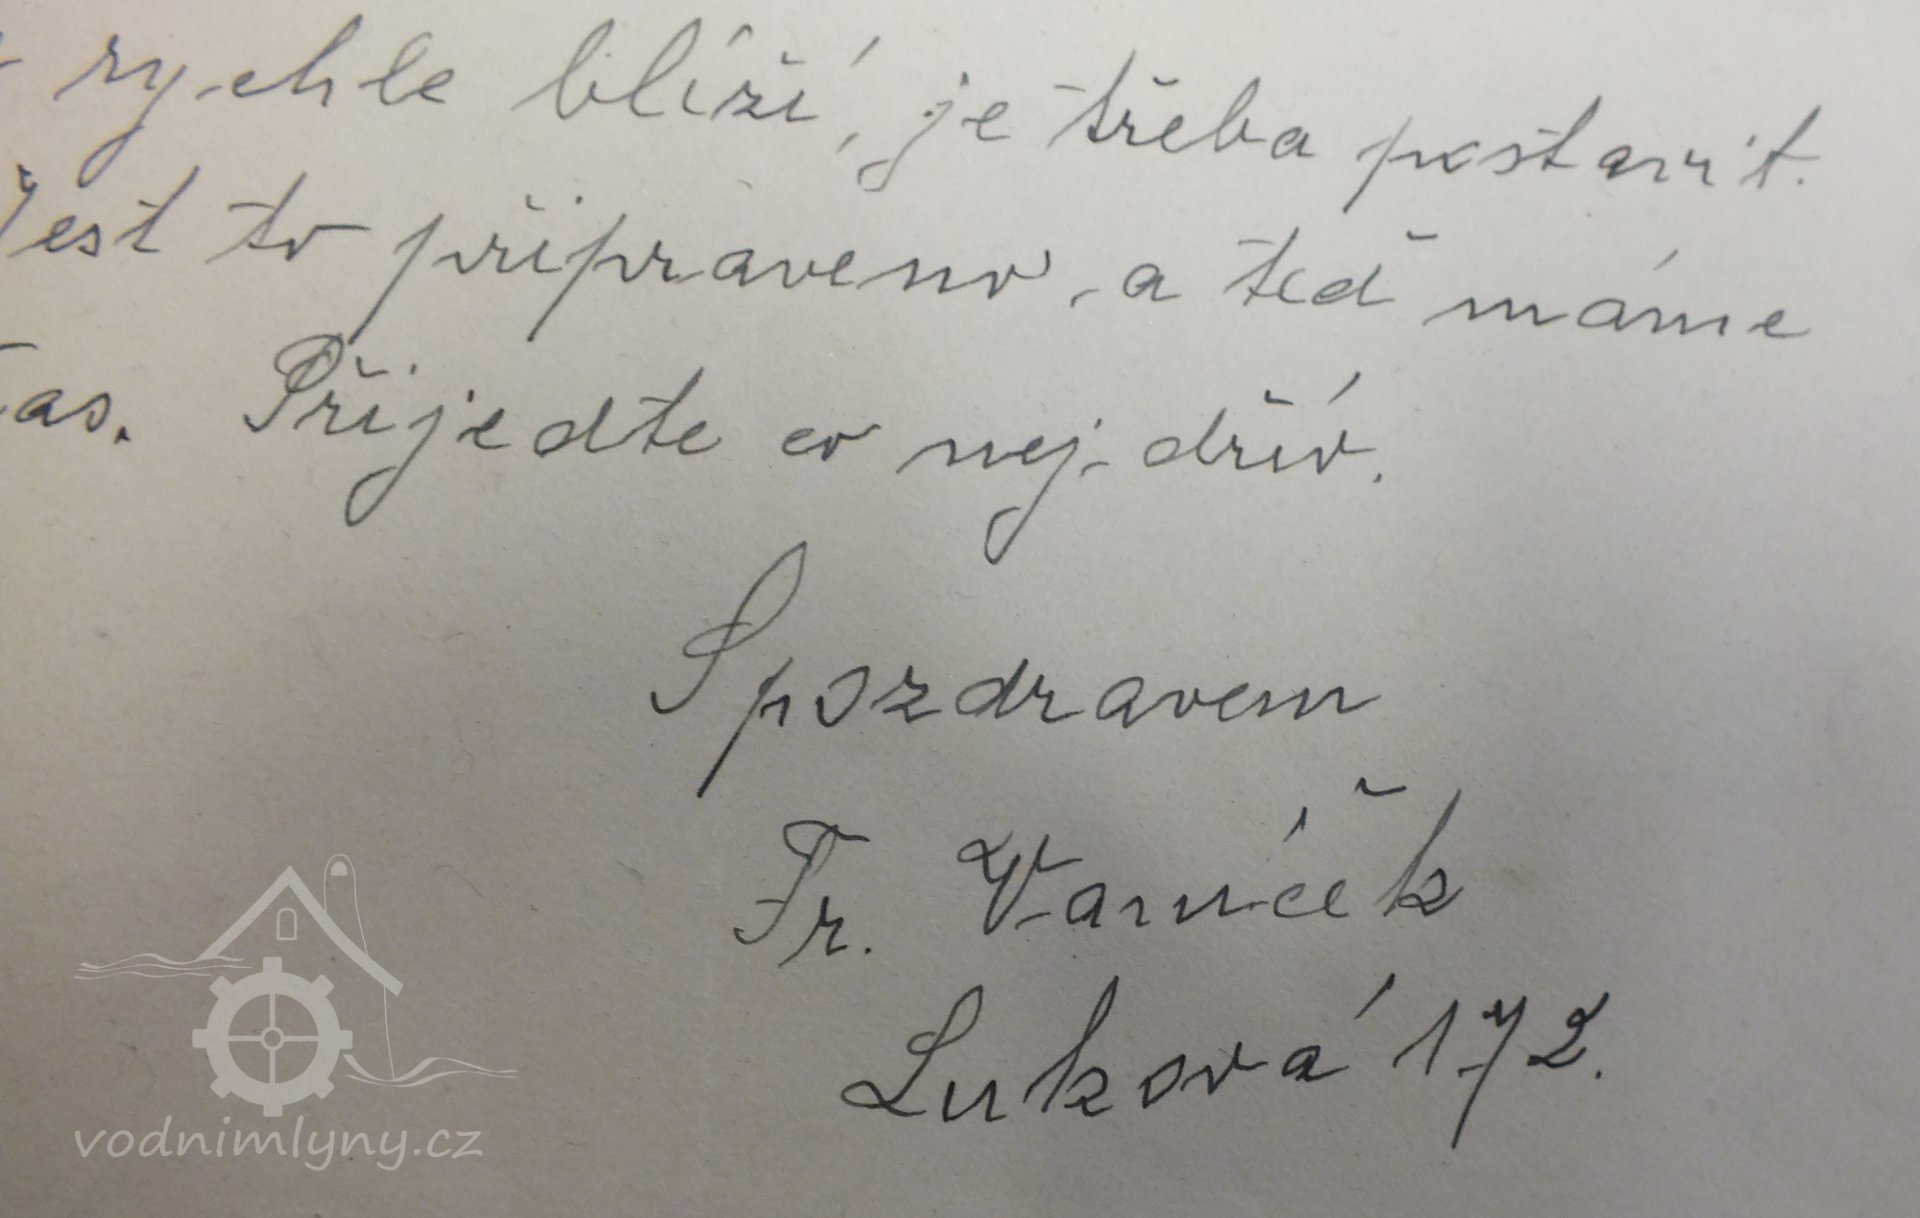 rychle blíží, je třeba postavit.
Jest to připraveno, a teď máme
čas. Přijeďte co nej-dřív.
S pozdravem
Fr. Vaníček
Luková 172.
vodnimlyny.cz